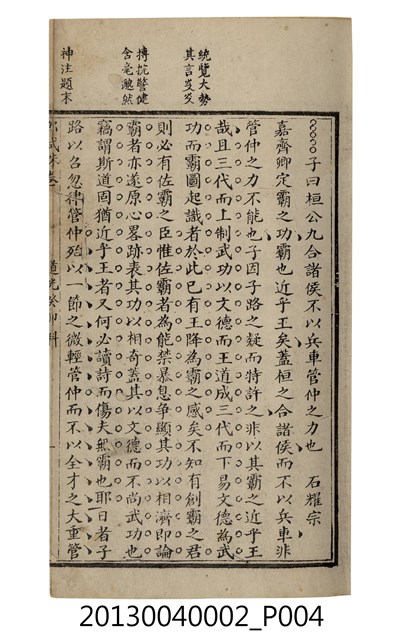 子曰桓公九合諸侯不以兵車管仲之力也　石耀宗
嘉齊卿定霸之功霸也近乎王矣蓋桓之合諸侯而不以兵車非
管仲之力不能也子因子路之疑而特許之非以其霸之近乎王
哉且三代而上制武功以文德而王道成三代而下易文德為武
功而霸圖起識者於此已有王降為霸之感矣不知有創霸之君
則必有佐霸之臣惟佐霸者為能禁暴息爭顯其功以相濟即論
霸者亦遂原心畧跡表其功以相奇蓋其以文德而不尚武功也
竊謂斯道固猶近乎王者又何必讀詩而傷夫無霸也耶日者子
路以召忽律管仲死以一節之微輕管仲而不以全才之大重管
統覽大勢
其言炎炎
摶捖警健
含毫邈然
神注題末
道光癸卯科
20130040002_P004